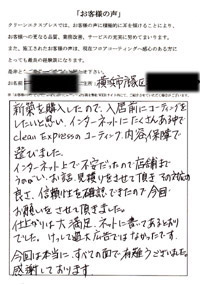 「お客様の声」
クリーンエクスプレスでは、お客様の声に積極的に耳を傾けることにより、
お客様への更なる品質、業務改善、サービスの充実に努めてまいります。
また、施工されたお客様の声は、現在フロアコーティングへ感心のある方に
とっても最高の経験談になります。
様 横浜市
新築を購入したので、入居前にコーティングを
したいと思い、インターネットにてたくさんある中で
clean Expressのコーティング内容、保障で
選びました。
インターネット上で不安だったので店舗まで
うかがい、お話、見積りをさせて頂き
良さ、信頼性を確認できたので今回
お願いをさせて頂きました。
仕上がりは大満足、ネットに書いてあるとおり
でした。けっして過大広告ではなかったです。
今回は本当に、すべての面で有難うございました。
感謝しております